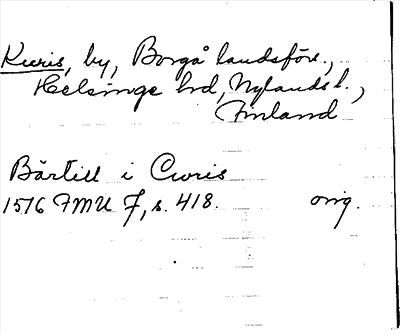 Kuris, by, Borgå landsförs.,
Helsinge hd, Nylands l.,
Finland
Bärtill i Cwris
1516 FMU 7, s. 418. orig.